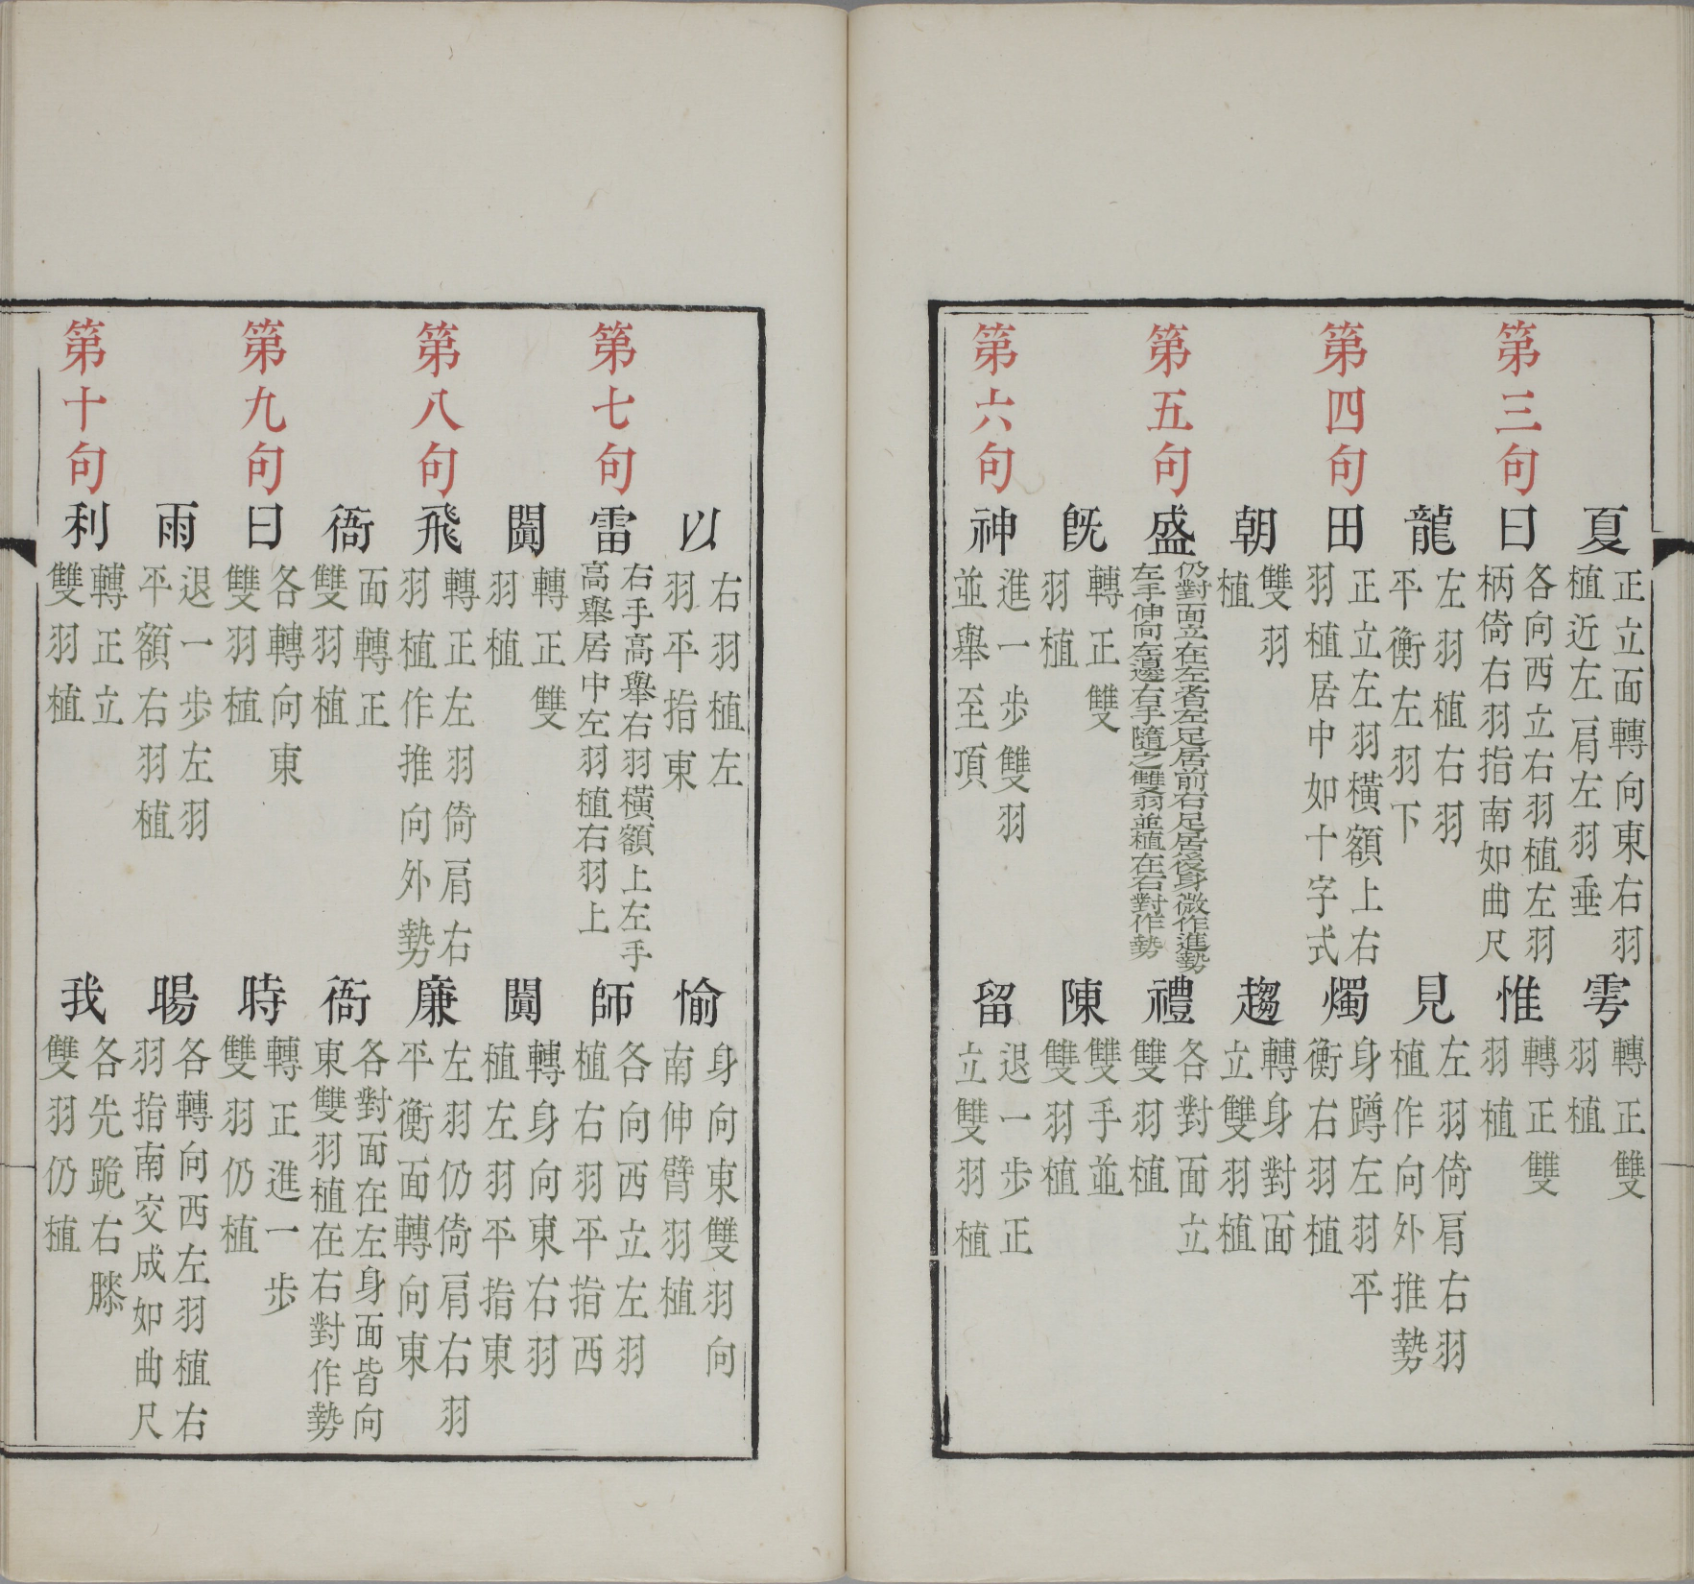 夏 正立面轉向東右羽植近左肩左羽垂 雩 轉正雙羽植
第三句 曰 各向西立右羽植左羽柄倚右羽指南如曲尺 惟 轉正雙羽植
龍 左羽植右羽平衡左羽下 見 左羽倚肩右羽植作向外推勢
第四句 田 正立左羽橫額上右羽植居中如十字式 燭 身蹲左羽平衡右羽植
朝 雙羽植 趨 轉身對面立雙羽植
第五句 盛 仍對面立在左者左足居前右足居後身微作進勢左手伸向左邊右手隨之雙羽並植在右對作勢 禮 各對面立雙羽植
旣 轉正雙羽植 陳 雙手並雙羽植
第六句 神 進一步雙羽並舉至頂 留 退一步正立雙羽植
以 右羽植左羽平指東 愉 身向東雙羽向南伸臂羽植
第七句 雷 右手高舉右羽橫額上左手高舉居中左羽植右羽上 師 各向西立左羽植右羽平指西
闐 轉正雙羽植 闐 轉身向東右羽植左羽平指東
第八句 飛 轉正左羽倚肩右羽植作推向外勢 廉 左羽仍倚肩右羽平衡面轉向東
衙 面轉正雙羽植 衙 各對面在左身面皆向東雙羽植在右對作勢
第九句 曰 各轉向東雙羽植 時 轉正進一步雙羽仍植
雨 退一步左羽平額右羽植 暘 各轉向西左羽植右羽指南交成如曲尺
第十句 利 轉正立雙羽植 我 各先跪右膝雙羽仍植